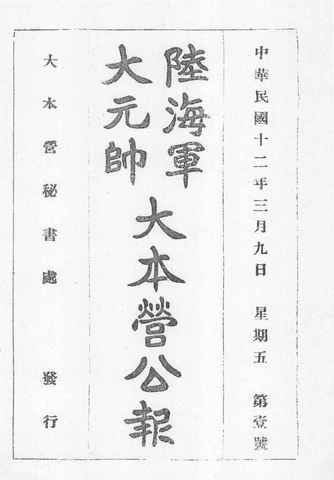 中華民國十二年三月九日 星期五 第壹號
陸海軍
大元帥
大本營公報
大本營秘書處 發行